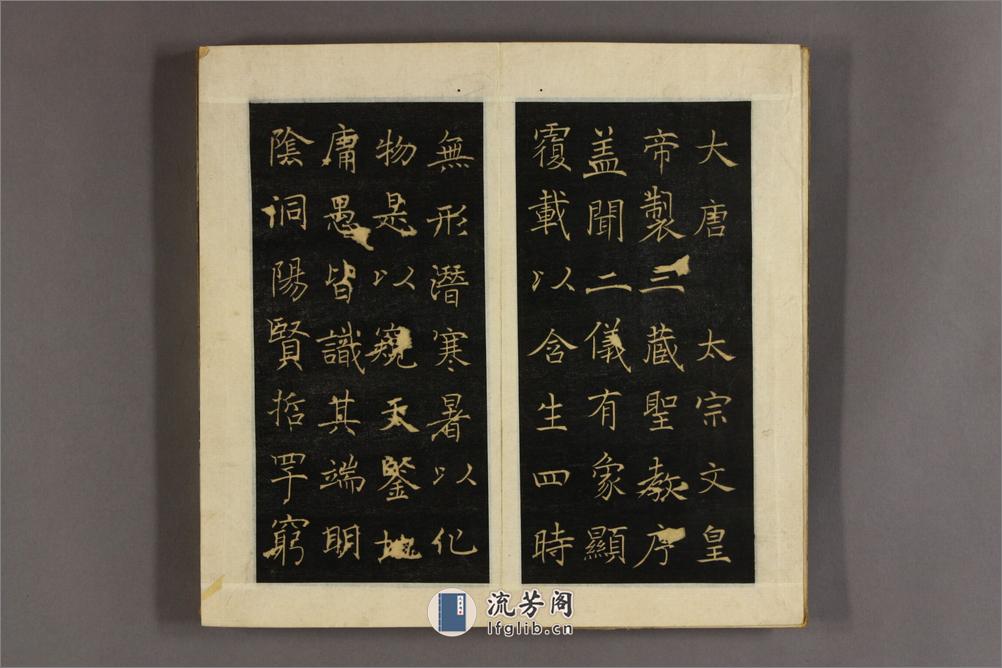 大唐太宗文皇
帝製三藏聖教序
盖聞二儀有象顯
覆載以含生四時
無形潛寒暑以化
物是以窺天鑒地
庸愚皆識其端明
陰洞陽賢哲罕窮
流芳阁
lfglib.cn